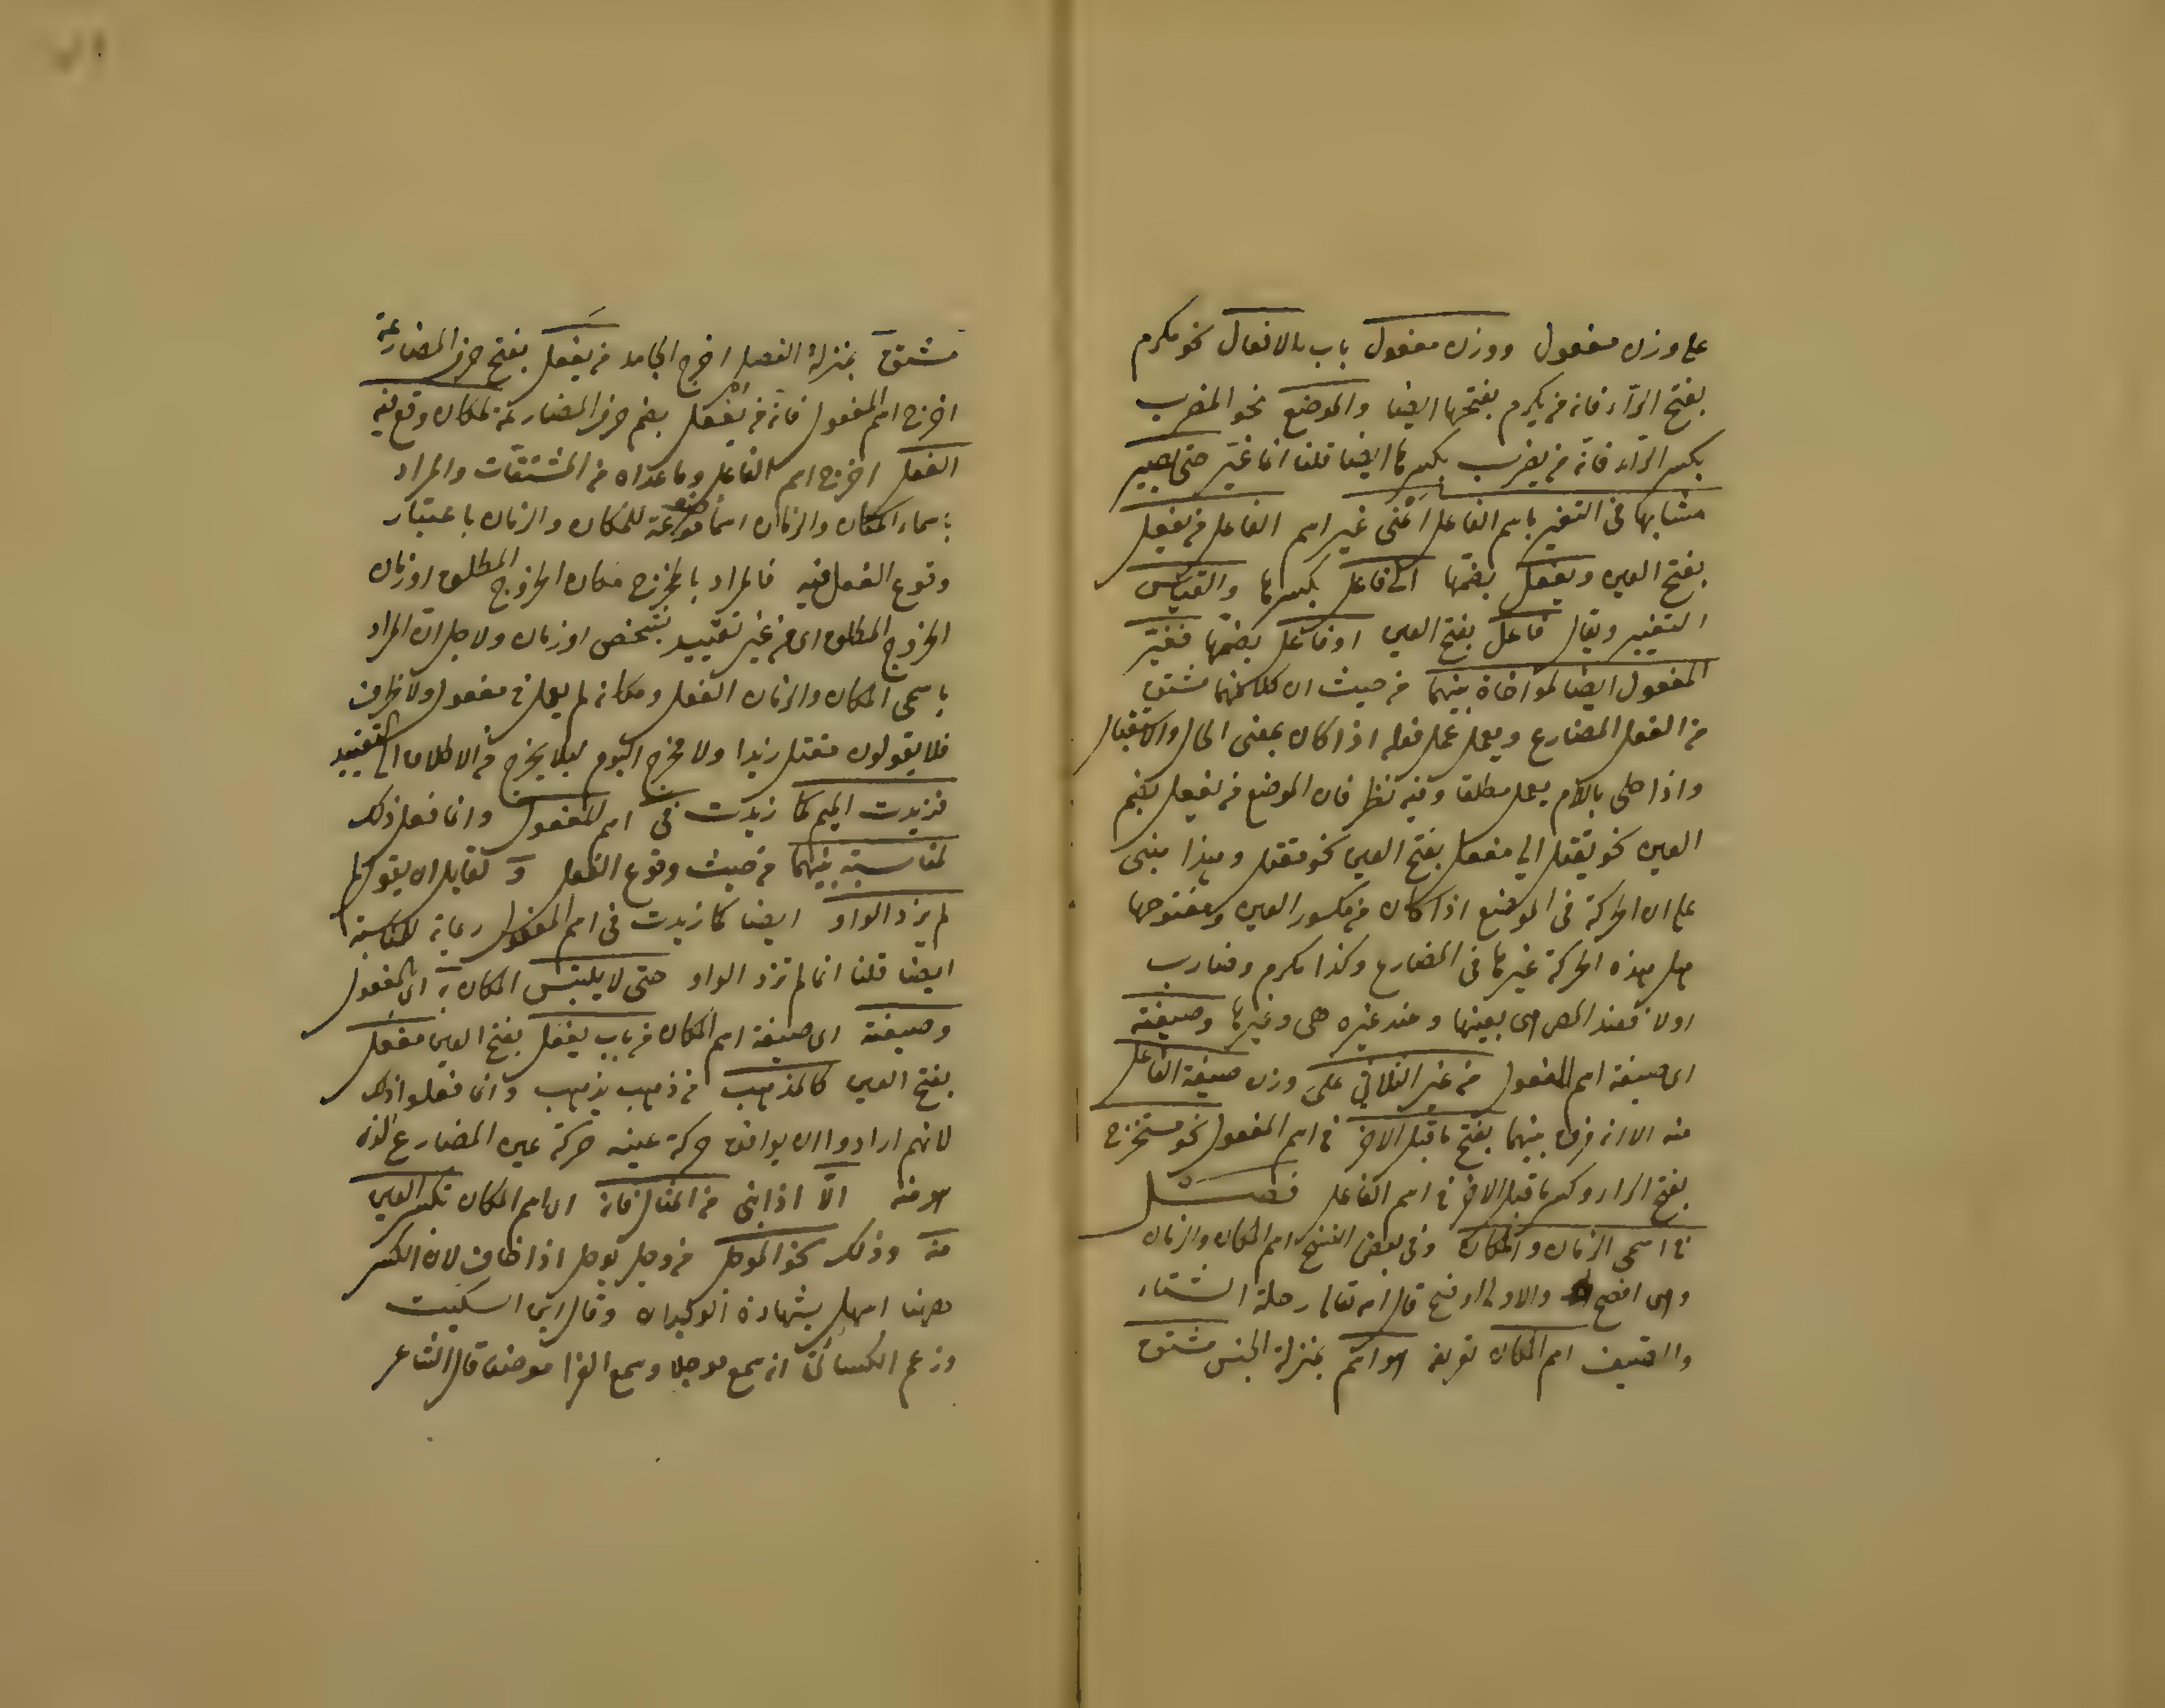 على وزن مفعول ووزن مفعول باب الافعال نحو مكرم
بفتح الراء فانه من يكرم بفتحها ايضا والموضع نحو المضرب
بكسر الراء فانه من يضرب بكسرها ايضا قلنا انما غير حتى يصير
مشابها فى التغير باسم الفاعل اعنى غير اسم الفاعل من يفعل
بفتح العين ويفعل بضمها الى فاعل بكسرها والقياس
التغيير ويقال فاعل بفتح العين او فاعل بضمها فغير
المفعول ايضا لمواخاة بينهما من حيث ان كلا منهما مشتق
من الفعل المضارع ويعمل عمل فعله اذا كان بمعنى الحال والاستقبال
واذا حلى باللام يعمل مطلقا وفيه نظر فان الموضع من يفعل بضم
العين نحو يقتل الى مفعل بفتح العين نحو مقتل وهذا مبنى
على ان الحركة فى الموضع اذا كان من مكسور العين ومفتوحها
هل هذه الحركة غيرها فى المضارع وكذا مكرم ومضارب
اولا فعند المص هى بعينها وعند غيره هى وغيرها وصيغته
اى صيغة اسم المفعول من غير الثلاثي على وزن صيغة الفاعل
منه الا انه فرق بينهما بفتح ما قبل الاخر فى اسم المفعول نحو مستخرج
بفتح الراء وكسر ما قبل الاخر فى اسم الفاعل فصل
فى اسمى الزمان والمكان وفى بعض النسخ اسم المكان والزمان
وهى افصح والاولى اوضح قال الله تعالى رحلة الشتاء
والصيف اسم المكان تعريفه هو اسم بمنزلة الجنس مشتق
مشتق بمنزلة الفصل اخرج الجامد من يفعل بفتح حرف المضارعة
اخرج اسم المفعول فانه من يفعل بضم حرف المضارعة لمكان وقع فيه
الفعل اخرج اسم الفاعل وما عداه من المشتقات والمراد
باسماء المكان والزمان اسما موضوعة للمكان والزمان باعتبار
وقوع الفعل فيه فالمراد بالمخرج مكان الخروج المطلق او زمان
الخروج المطلق اى من غير تقييد بشخص او زمان ولاجل ان المراد
باسمى المكان والزمان الفعل ومكانه لم يعمل فى مفعول ولا ظرف
فلا يقولون مقتل زيدا ولا مخرج اليوم ليلا يخرج من الاطلاق الى التقييد
فزيدت الميم كما زيدت فى اسم المفعول وانما فعل ذلك
لمناسبة بينهما من حيث وقوع الفعل و لقايل ان يقول لم
لم يزد الواو ايضا كما زيدت فى اسم المفعول رعاية للمناسبة
ايضا قلنا انما لم تزد الواو حتى لا يلتبس المكان به اى بالمفعول
وصيغته اى صيغة اسم المكان من باب يفعل بفتح العين مفعل
بفتح العين كالمذهب من ذهب يذهب وانما فعلوا ذلك
لانهم ارادوا ان يوافق حركة عينه حركة عين المضارع الذى
هو منه الا اذا بنى من المثال فانه اى اسم المكان تكسر العين
منه وذلك نحو الموجل من وجل يوجل اذا خاف لان الكسر
ههنا اسهل بشهادة الوجدان وقال ابن السكيت
وزعم الكسائى انه سمع موجلا وسمع الفرا موضعا قال الشاعر